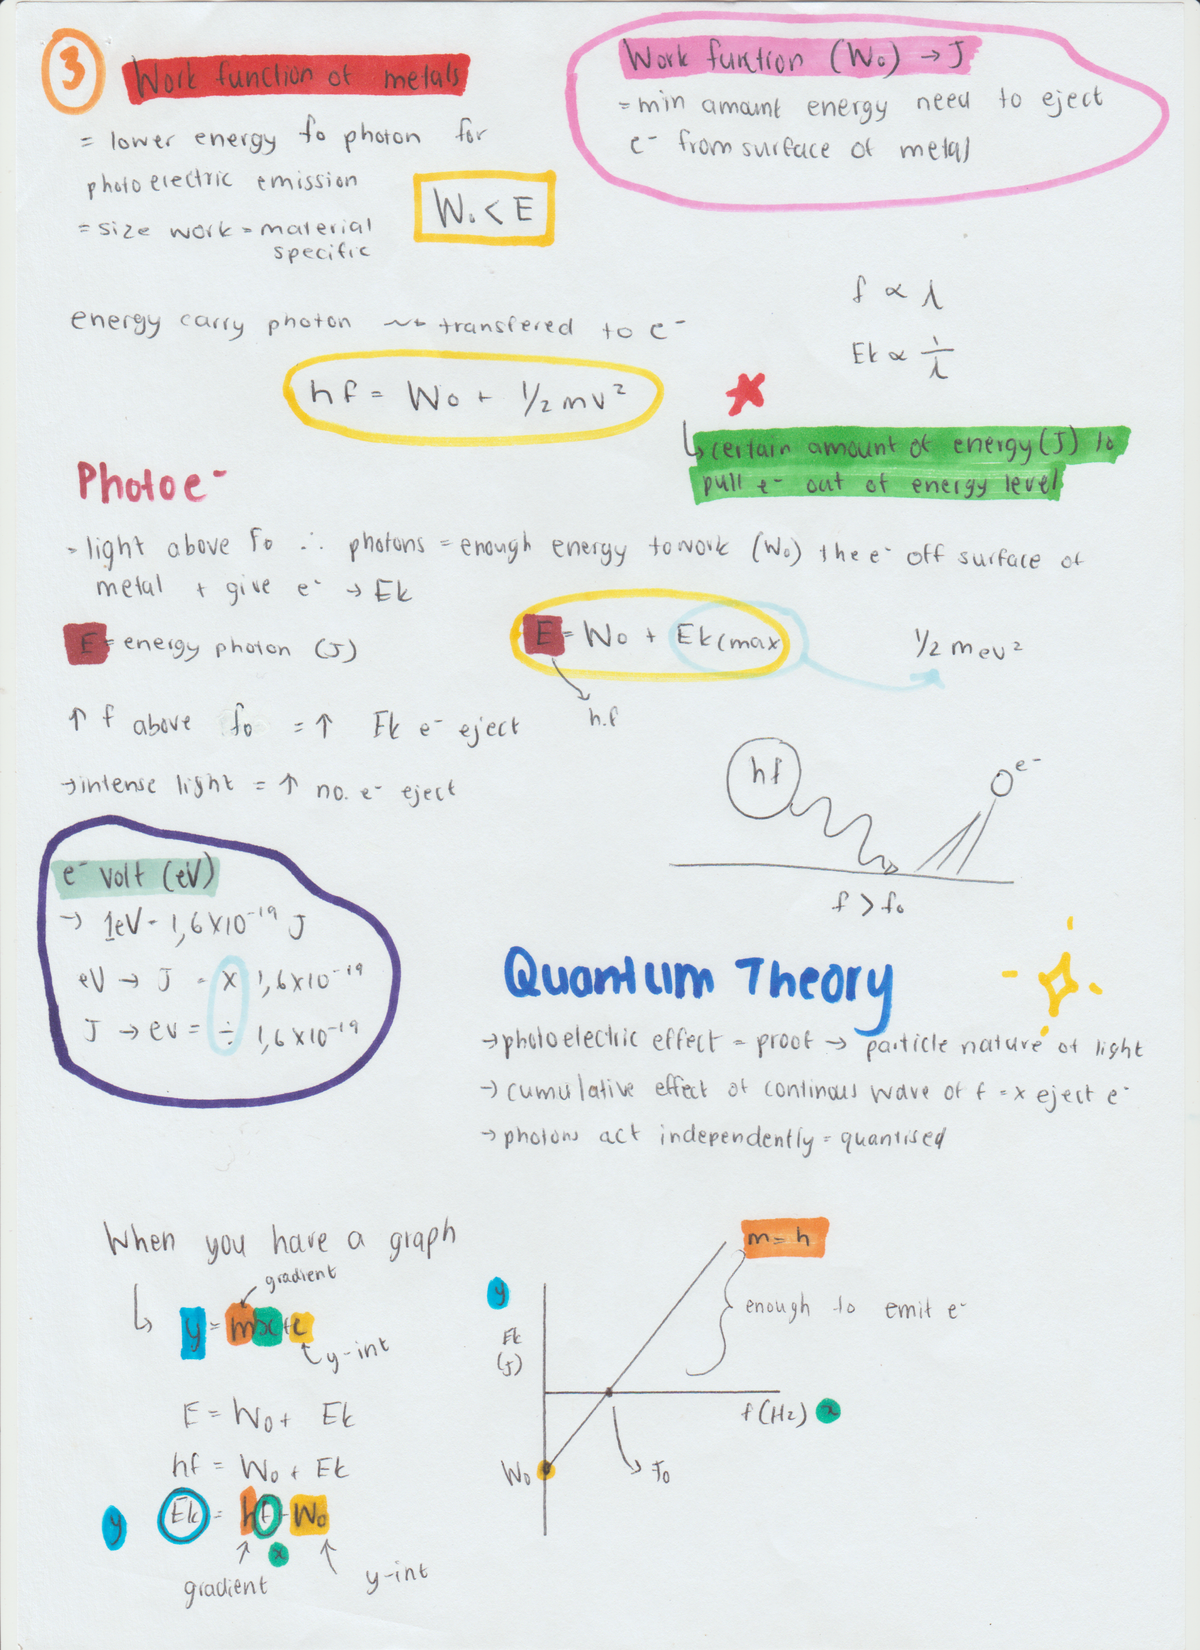 3
Work function of metals
= lower energy fo photon for
photoelectric emission
= size work = material
specific
W₀ < E
Work funtion (W₀) → J
= min amount energy need to eject
e⁻ from surface of metal
f ∝ λ
Ek ∝ 1/λ
energy carry photon ⤳ transfered to e⁻
hf = W₀ + 1/2 mv²
↳ certain amount of energy (J) to
pull e⁻ out of energy level
Photo e⁻
= light above Fo ∴ photons = enough energy to work (W₀) the e⁻ off surface of
metal + give e⁻ → Ek
E = energy photon (J)
E = W₀ + Ek(max
1/2 mev²
h.f
↑ f above fo = ↑ Ek e⁻ eject
→ intense light = ↑ no. e⁻ eject
hf
e⁻
f > fo
e⁻ volt (eV)
→ 1eV = 1,6x10⁻¹⁹ J
eV → J = x 1,6x10⁻¹⁹
J → ev = ÷ 1,6x10⁻¹⁹
Quantum Theory
→ photoelectric effect = proof → particle nature of light
→ cumulative effect of continous wave of f = x eject e⁻
→ photons act independently = quantised
When you have a graph
gradient
↳ y = mx + c
y-int
E = W₀ + Ek
hf = W₀ + Ek
y Ek = hf - W₀
x
gradient
y-int
m = h
y
enough to emit e⁻
Ek
(J)
f(Hz) x
W₀
fo